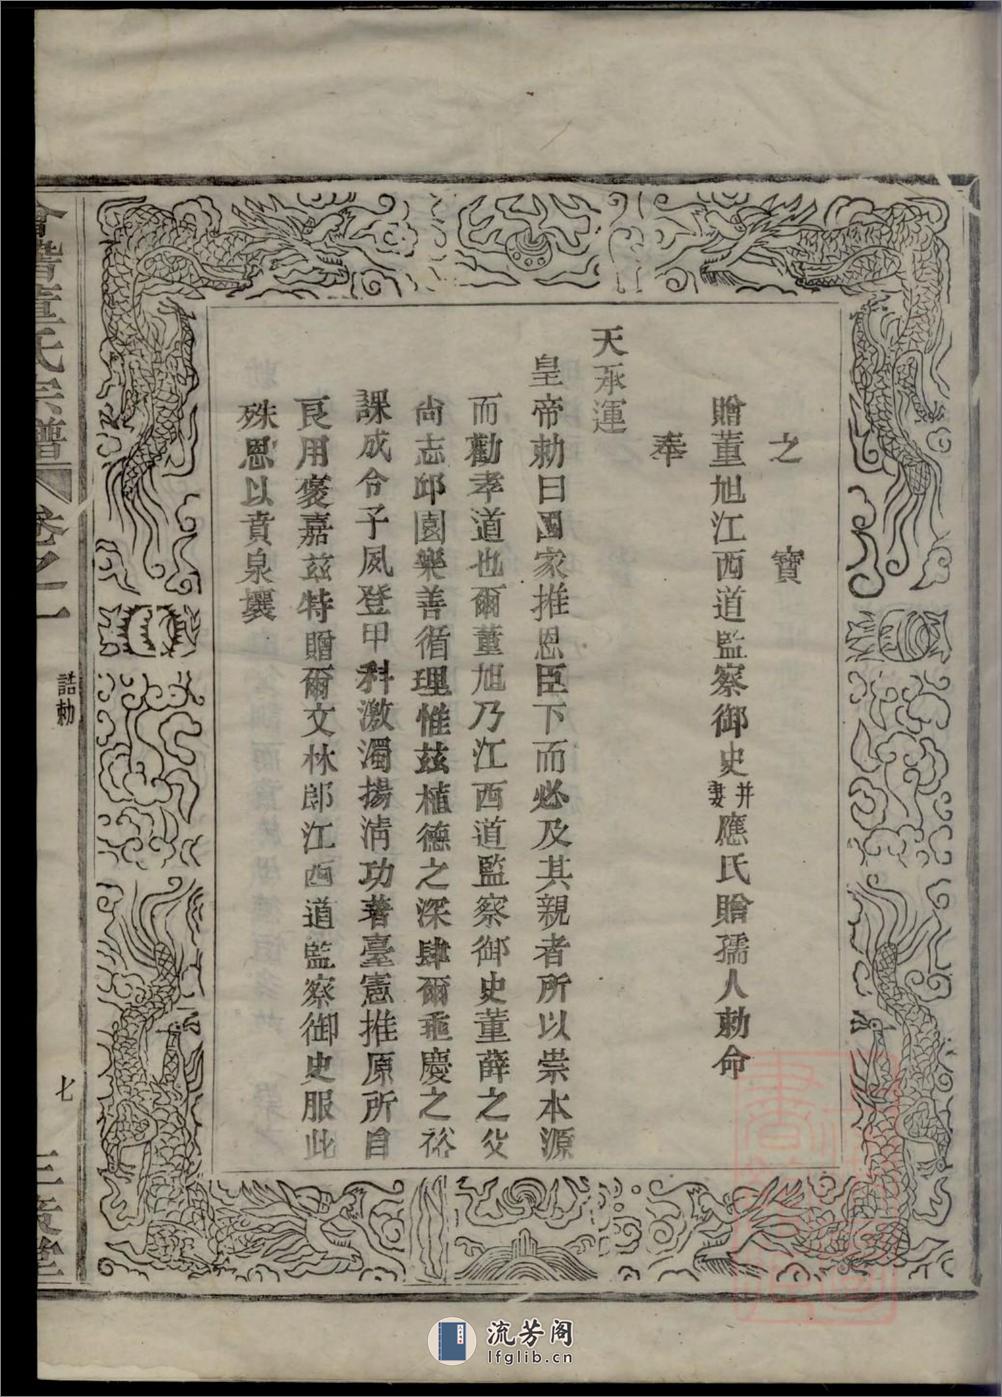 之寶
贈董旭江西道監察御史并妻應氏贈孺人勅命
奉
天承運
皇帝勅曰國家推恩臣下而必及其親者所以崇本源
而勸孝道也爾董旭乃江西道監察御史董薛之父
尚志邱園樂善循理惟茲植德之深肆爾垂慶之裕
課成令子夙登甲科激濁揚淸功著臺憲推原所自
良用褒嘉茲特贈爾文林郎江西道監察御史服此
殊恩以賁泉壤
會稽董氏宗譜
卷之一
誥勅
七
流芳阁
lfglib.cn